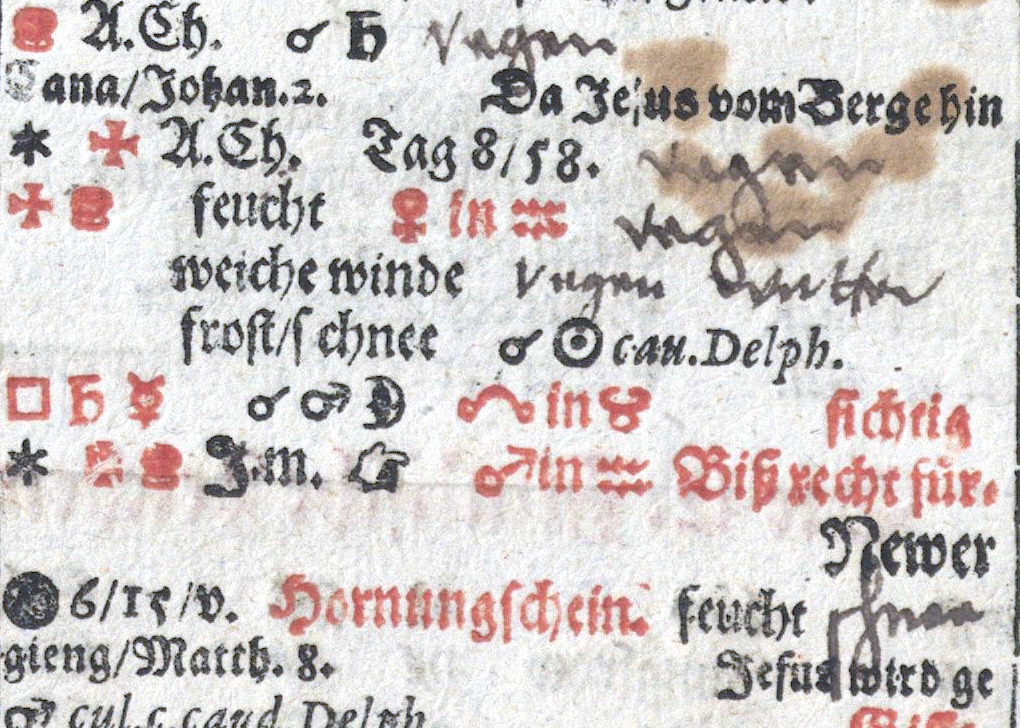 A.Ch. ☌ ♄ Regen
Cana/Johan.2. Da Jesus vom Berge hin
* ✠ A.Ch. Tag 8/58. Regen
✠ feucht ♀ in ♒ Regen
weiche winde Regen
frost/schnee ☌ ☉ cau.Delph.
□ ♄ ☿ ☌ ♂ ☽ in ♉ sichtig
* ✠ J.m. ☞ ♂ in ♒ Biß recht für.
Newer
● 6/15/v. Hornungschein. feucht schnee
gieng/Matth. 8. Jesus wird ge
♂ cul.c.caud.Delph.